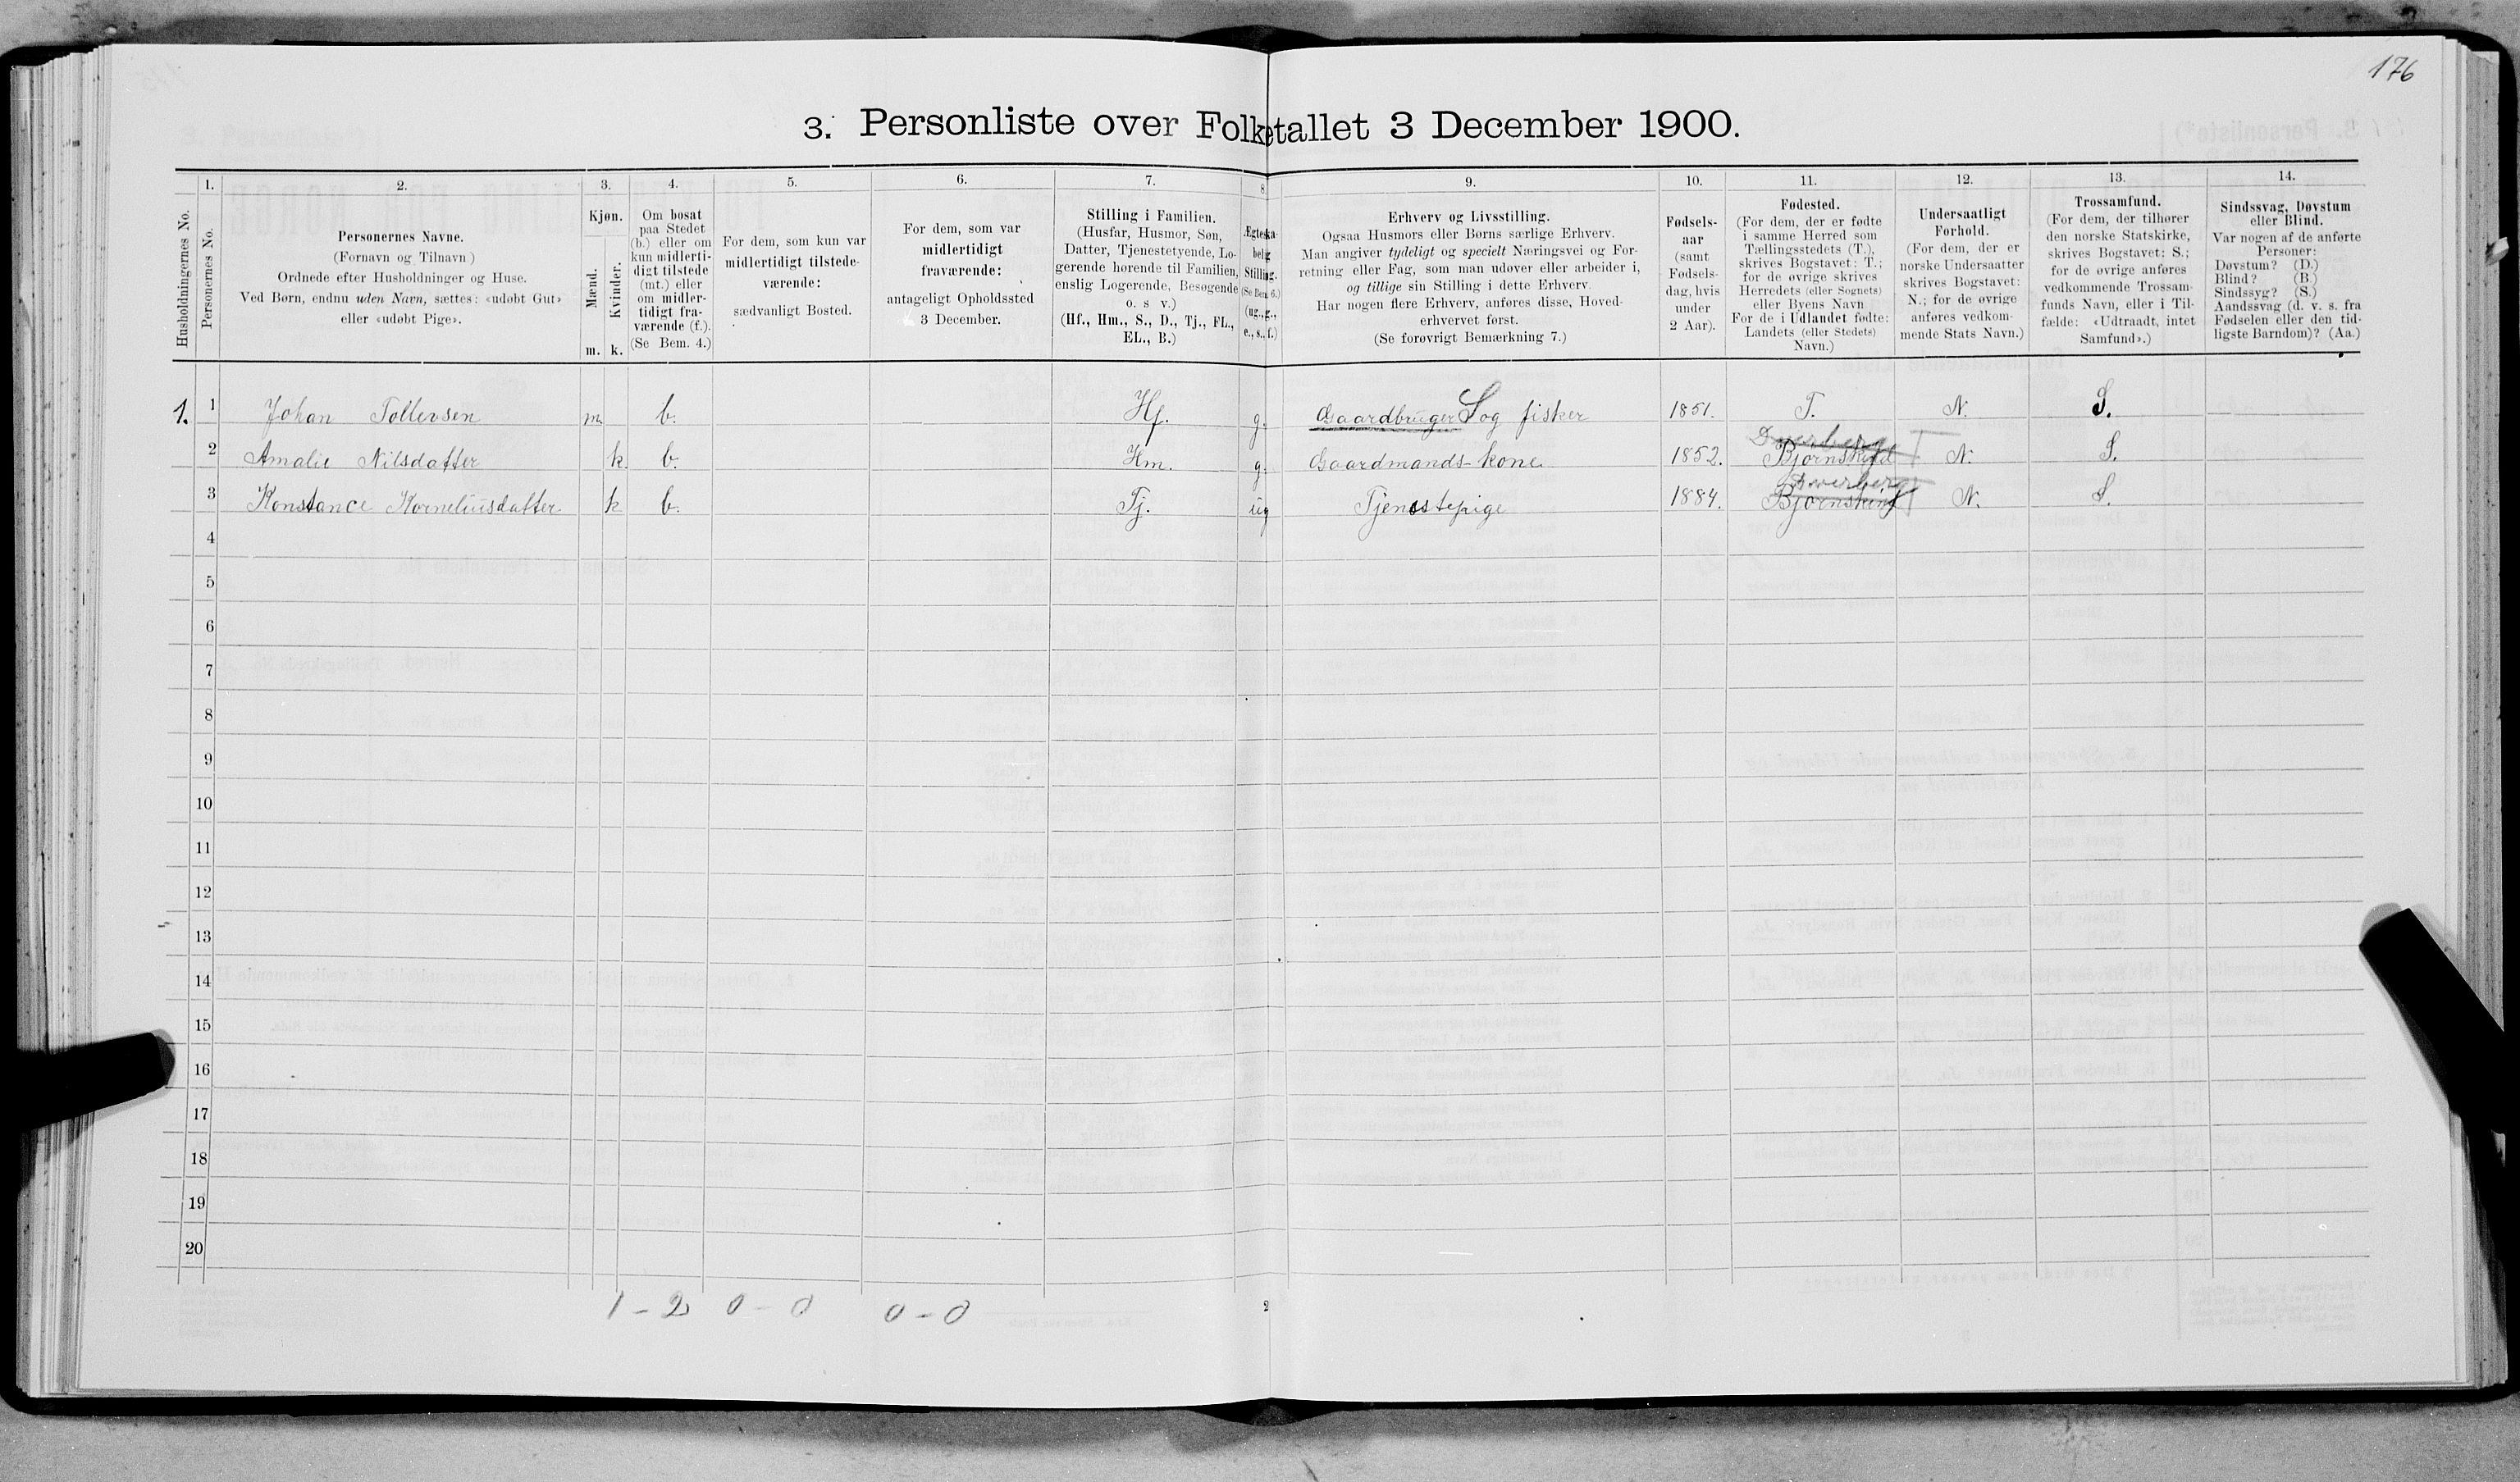 176
3. Personliste over Folketallet 3 December 1900.
Husholdningernes No.
1.
Personernes No.
2.
Personernes Navne.
(Fornavn og Tilnavn)
Ordnede efter Husholdninger og Huse.
Ved Børn, endnu uden Navn, sættes: «udøbt Gut»
eller «udøbt Pige».
3.
Kjøn.
Mænd.
Kvinder.
m. k.
4.
Om bosat
paa Stedet
(b.) eller om
kun midlerti-
digt tilstede
(mt.) eller
om midler-
tidigt fra-
værende (f.).
(Se Bem. 4.)
5.
For dem, som kun var
midlertidigt tilstede-
værende:
sædvanligt Bosted.
6.
For dem, som var
midlertidigt
fraværende:
antageligt Opholdssted
3 December.
7.
Stilling i Familien.
(Husfar, Husmor, Søn,
Datter, Tjenestetyende, Lo-
gerende hørende til Familien,
enslig Logerende, Besøgende
o. s v.)
(Hf., Hm., S., D., Tj., FL.,
EL., B.)
8
Ægteska-
belig
Stilling.
(Se Bem. 6.)
(ug., g.,
e., s., f.)
9.
Erhverv og Livsstilling.
Ogsaa Husmors eller Børns særlige Erhverv.
Man angiver tydeligt og specielt Næringsvei og For-
retning eller Fag, som man udøver eller arbeider i,
og tillige sin Stilling i dette Erhverv.
Har nogen flere Erhverv, anføres disse, Hoved-
erhvervet først.
(Se forøvrigt Bemærkning 7.)
10.
Fødsels-
aar
(samt
Fødsels-
dag, hvis
under
2 Aar).
11.
Fødested.
(For dem, der er fødte
i samme Herred som
Tællingsstedets (T.),
skrives Bogstavet: T.;
for de øvrige skrives
Herredets (eller Sognets)
eller Byens Navn
For de i Udlandet fødte:
Landets (eller Stedets)
Navn.)
12.
Undersaatligt
Forhold.
(For dem, der er
norske Undersaatter
skrives Bogstavet:
N.; for de øvrige
anføres vedkom-
mende Stats Navn.)
13.
Trossamfund.
(For dem, der tilhører
den norske Statskirke,
skrives Bogstavet: S.;
for de øvrige anføres
vedkommende Trossam-
funds Navn, eller i Til-
fælde: «Udtraadt, intet
Samfund».)
14.
Sindssvag, Døvstum
eller Blind.
Var nogen af de anførte
Personer:
Døvstum? (D.)
Blind? (B.)
Sindssyg? (S.)
Aandssvag (d. v. s. fra
Fødselen eller den tid-
ligste Barndom)? (Aa.)
1. 1 Johan Tollevsen m. b. Hf. g. Gaardbruger S og fisker 1851. T. N. S.
Dverberg T
2 Amalie Nilsdatter k. b. Hm. g. Gaardmands-kone 1852. N. S.
Dverberg
3 Konstance Korneliusdatter k b. Tj. ug Tjenestepige 1884. N. S.
4
5
6
7
8
9
10
11
12
13
14
15
16
17
18
19
20
1 - 2 0 - 0 0 - 0
2